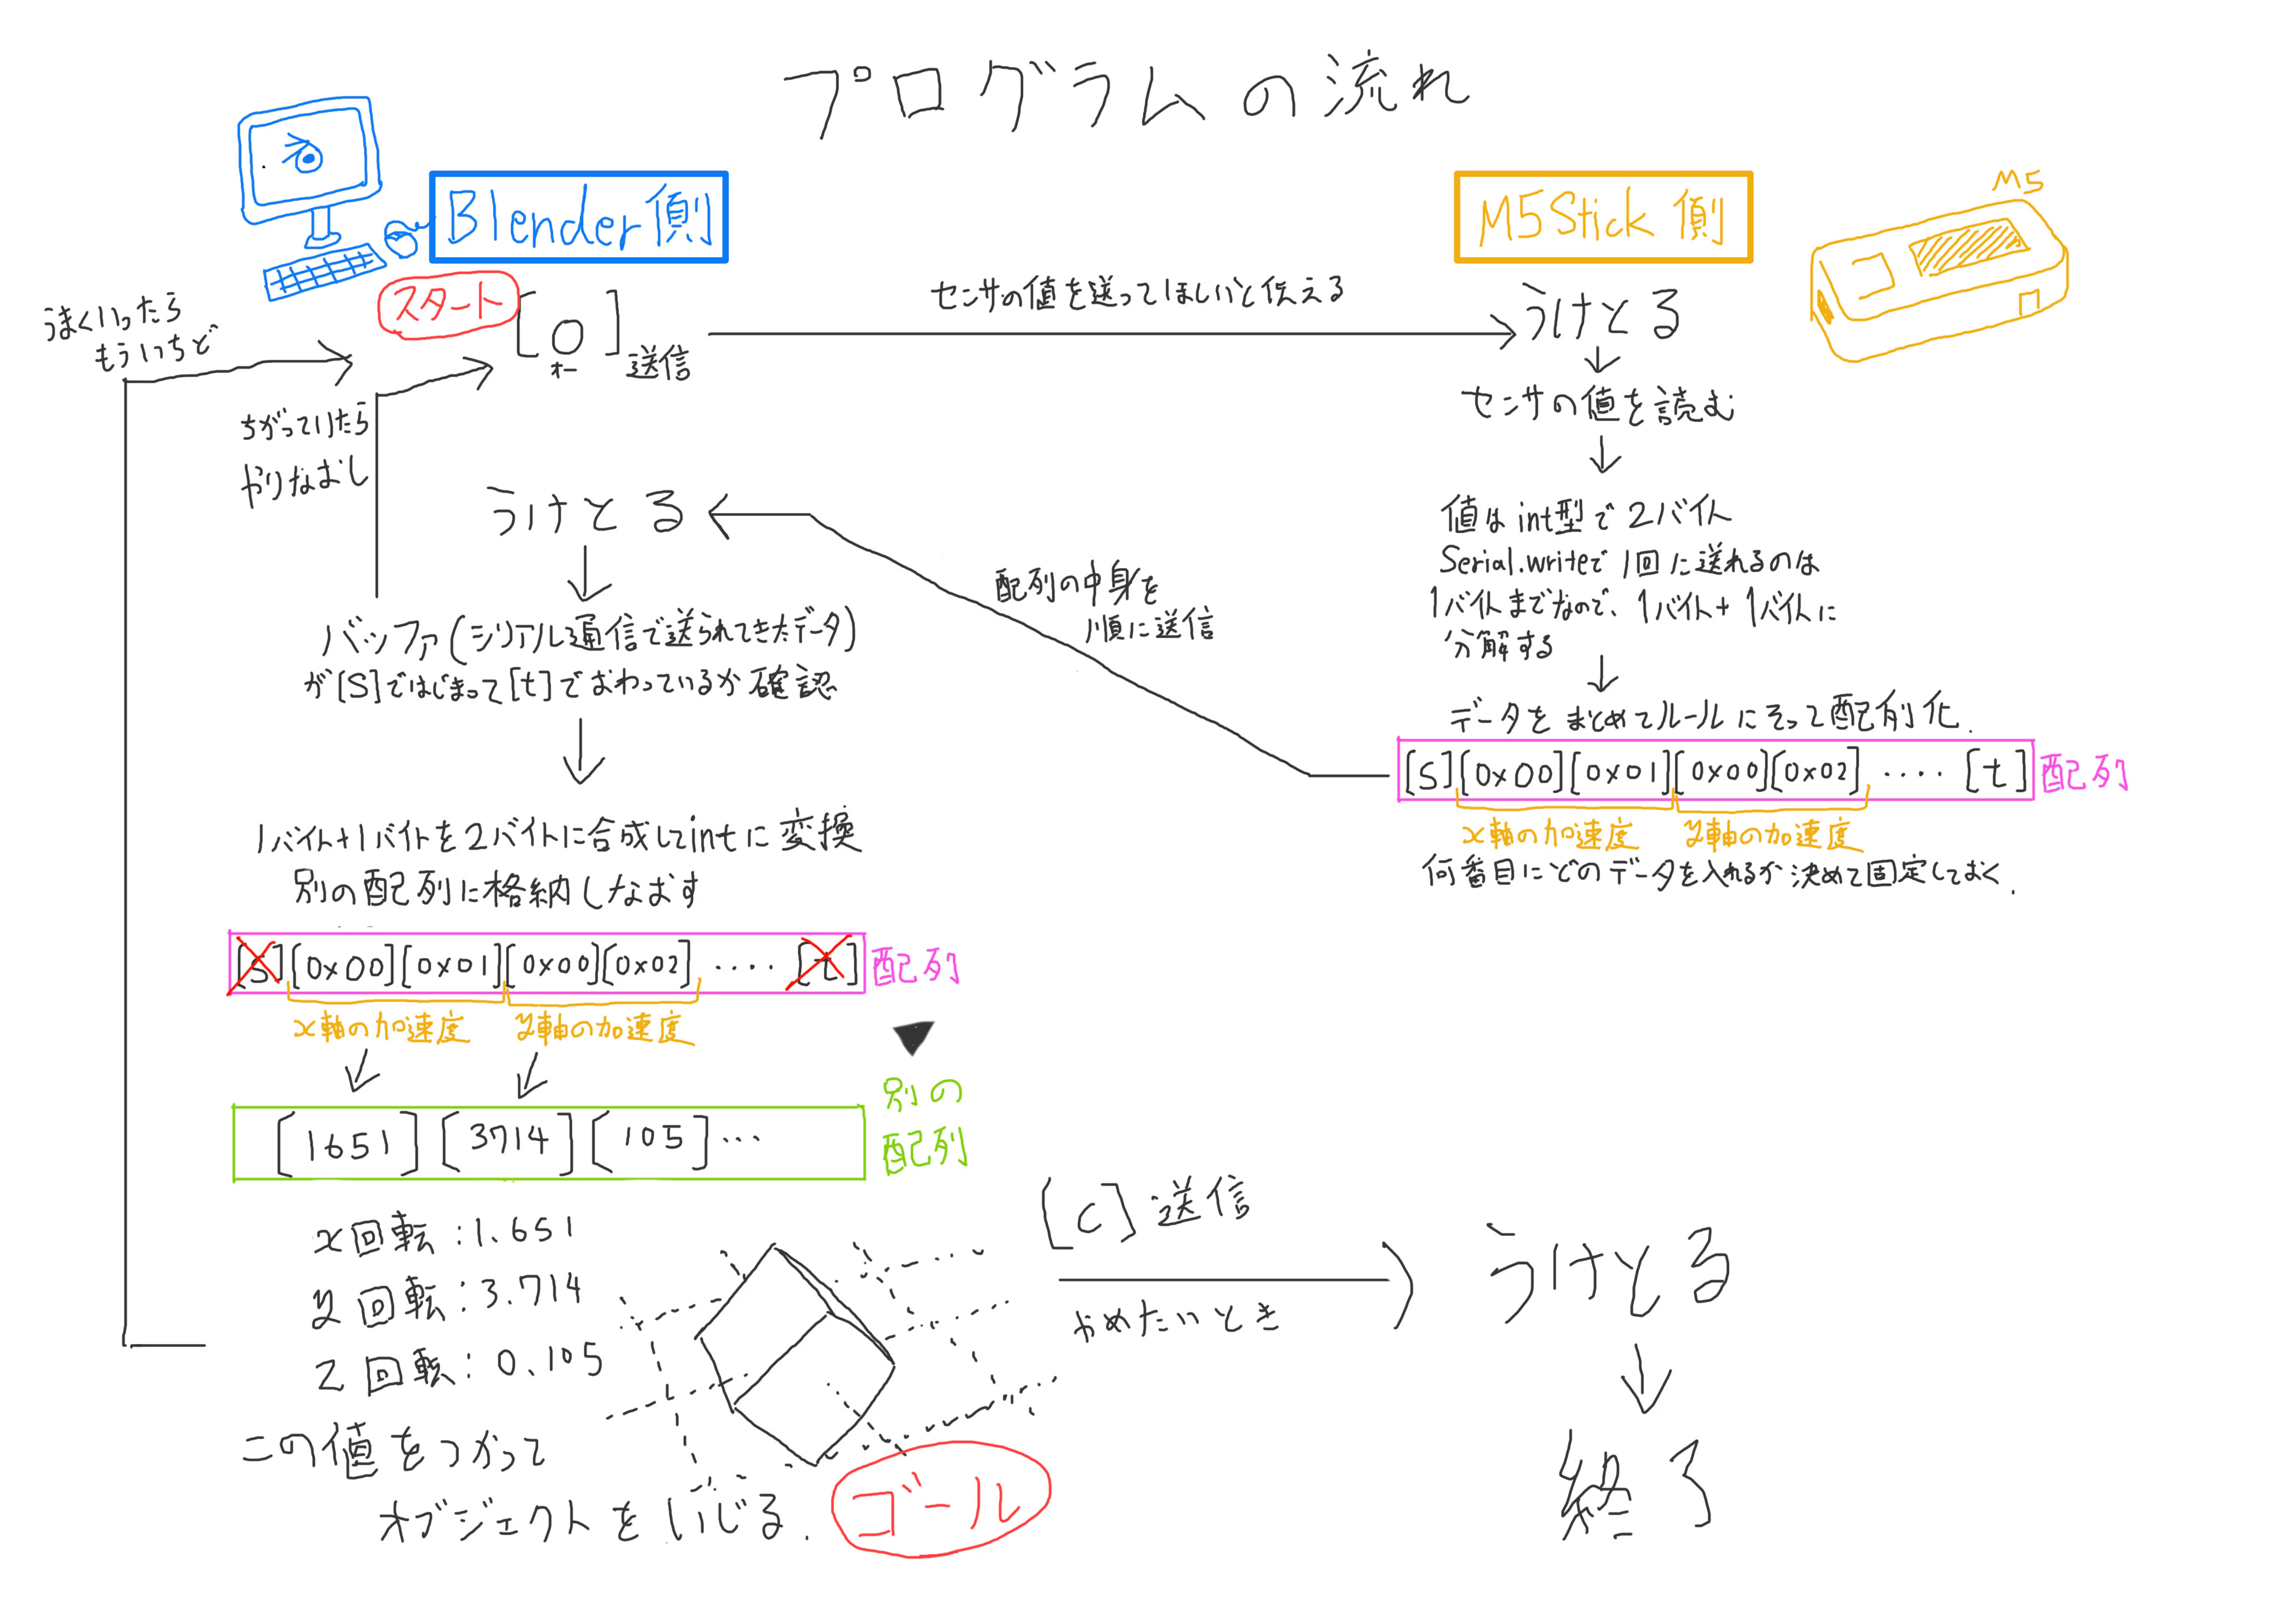 プログラムの流れ
Blender側
M5Stick側
M5
スタート
[o]送信
オー
センサの値を送ってほしいと伝える
うけとる
センサの値を読む
値はint型で2バイト
Serial.writeで1回に送れるのは
1バイトまでなので、1バイト+1バイトに
分解する
データをまとめてルールにそって配列化.
[S][0x00][0x01][0x00][0x02]....[t]
配列
x軸の加速度
y軸の加速度
何番目にどのデータを入れるか決めて固定しておく.
配列の中身を
順に送信
うけとる
うまくいったら
もういちど
ちがっていたら
やりなおし
バッファ(シリアル通信で送られてきたデータ)
が[S]ではじまって[t]でおわっているか確認
1バイト+1バイトを2バイトに合成してintに変換
別の配列に格納しなおす
[S][0x00][0x01][0x00][0x02]....[t]
配列
x軸の加速度
y軸の加速度
別の
配列
[1651][3714][105]...
x回転:1.651
y回転:3.714
z回転:0.105
この値をつかって
オブジェクトをいじる.
ゴール
[c]送信
やめたいとき
うけとる
終了